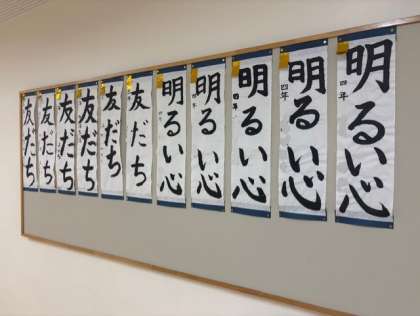 明るい心
四年
明るい心
四年
明るい心
四年
明るい心
明るい心
友だち
友だち
友だち
友だち
友だち
友だち